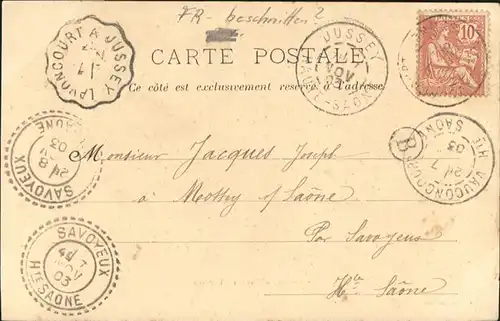 FR- beschnitten?
LAVONCOURT A JUSSEY
JUSSEY
NOV
03
HAUTE-SAÔNE
10
CARTE POSTALE
Ce côté est exclusivement réservé à l'adresse
SAVOYEUX
8
03
SAONE
VAUCONCOURT
Hte SAONE
7
03
B
Monsieur Jacques Joseph
à s/ Saône
Par Savoyeux
Hte Saône
SAVOYEUX
7
NOV
03
Hte SAONE